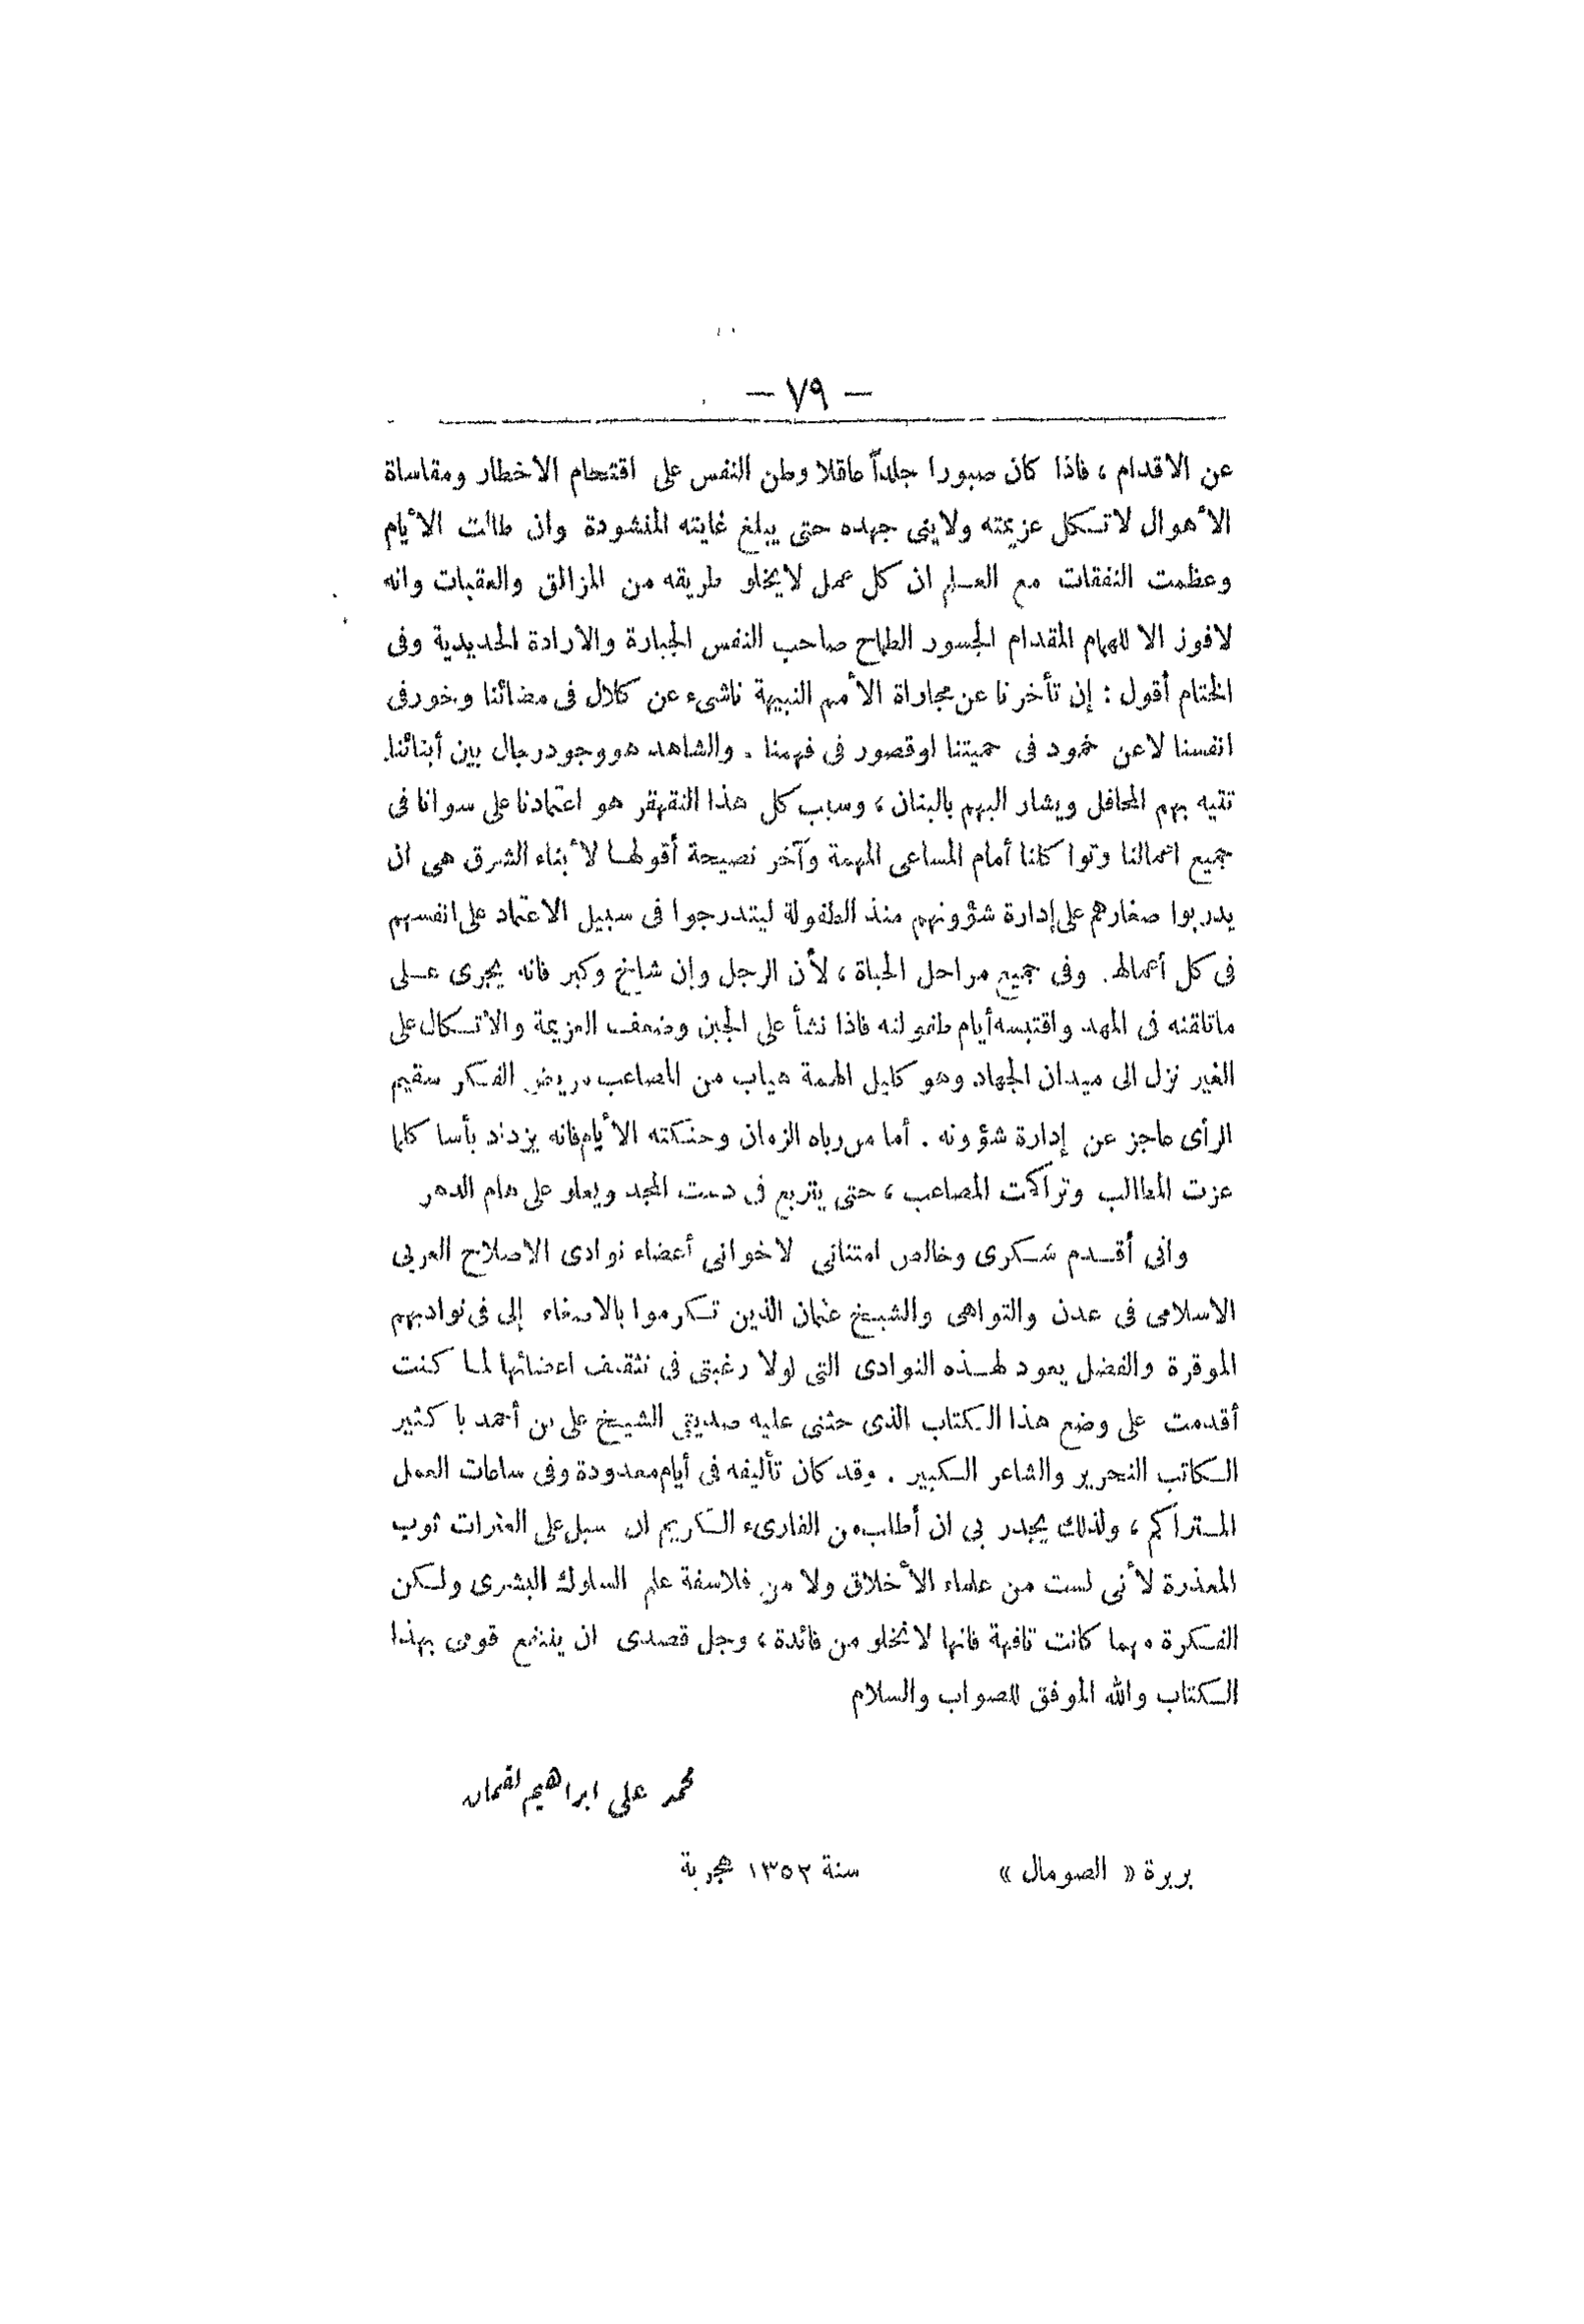 — ٧٩ —
عن الاقدام ، فاذا كان صبورا جلداً عاقلا وطن النفس على اقتحام الاخطار ومقاساة
الأهوال لاتكل عزيمته ولاينى جهده حتى يبلغ غايته المنشودة وان طالت الأيام
وعظمت النفقات مع العلم ان كل عمل لايخلو طريقه من المزالق والعقبات وانه
لافوز الا للهمام المقدام الجسور الطماح صاحب النفس الجبارة والارادة الحديدية وفى
الختام أقول : إن تأخرنا عن مجاراة الأمم النبيهة ناشىء عن كلال فى مضائنا وخور فى
انفسنا لاعن خمود فى حميتنا اوقصور فى فهمنا . والشاهد هو وجود رجال بين أبنائنا
تتيه بهم المحافل ويشار اليهم بالبنان ، وسبب كل هذا التقهقر هو اعتمادنا على سوانا فى
جميع اعمالنا وتوا كلنا أمام المساعى المهمة وآخر نصيحة أقولها لأبناء الشرق هى ان
يدربوا صغارهم على إدارة شؤونهم منذ الطفولة ليتدرجوا فى سبيل الاعتماد على انفسهم
فى كل أعمالهم وفى جميع مراحل الحياة ، لأن الرجل وإن شاخ وكبر فانه يجرى على
ماتلقنه فى المهد واقتبسه أيام طفولته فاذا نشأ على الجبن وضعف العزيمة والاتكال على
الغير نزل الى ميدان الجهاد وهو كليل الهمة هياب من المصاعب مريض الفكر سقيم
الرأى عاجز عن إدارة شؤونه . أما من رباه الزمان وحنكته الأيام فانه يزداد بأسا كلما
عزت المطالب وتراكمت المصاعب ، حتى يتربع فى دست المجد ويعلو على هام الدهر
وانى أقدم شكرى وخالص امتنانى لاخوانى أعضاء نوادى الاصلاح العربى
الاسلامى فى عدن والتواهى والشيخ عثمان الذين تكرموا بالاصغاء إلى فى نواديهم
الموقرة والفضل يعود لهذه النوادى التى لولا رغبتى فى تثقيف اعضائها لما كنت
أقدمت على وضع هذا الكتاب الذى حثنى عليه صديقى الشيخ على بن أحمد با كثير
الكاتب النحرير والشاعر الكبير . وقد كان تأليفه فى أيام معدودة وفى ساعات العمل
المتراكم ، ولذلك يجدر بى ان أطلب من القارىء الكريم ان يسبل على العثرات ثوب
المعذرة لأنى لست من علماء الأخلاق ولا من فلاسفة علم السلوك البشرى ولكن
الفكرة مهما كانت تافهة فانها لاتخلو من فائدة ، وجل قصدى ان ينتفع قومى بهذا
الكتاب والله الموفق للصواب والسلام
محمد على ابراهيم لقمان
بربرة « الصومال » سنة ١٣٥٢ هجرية